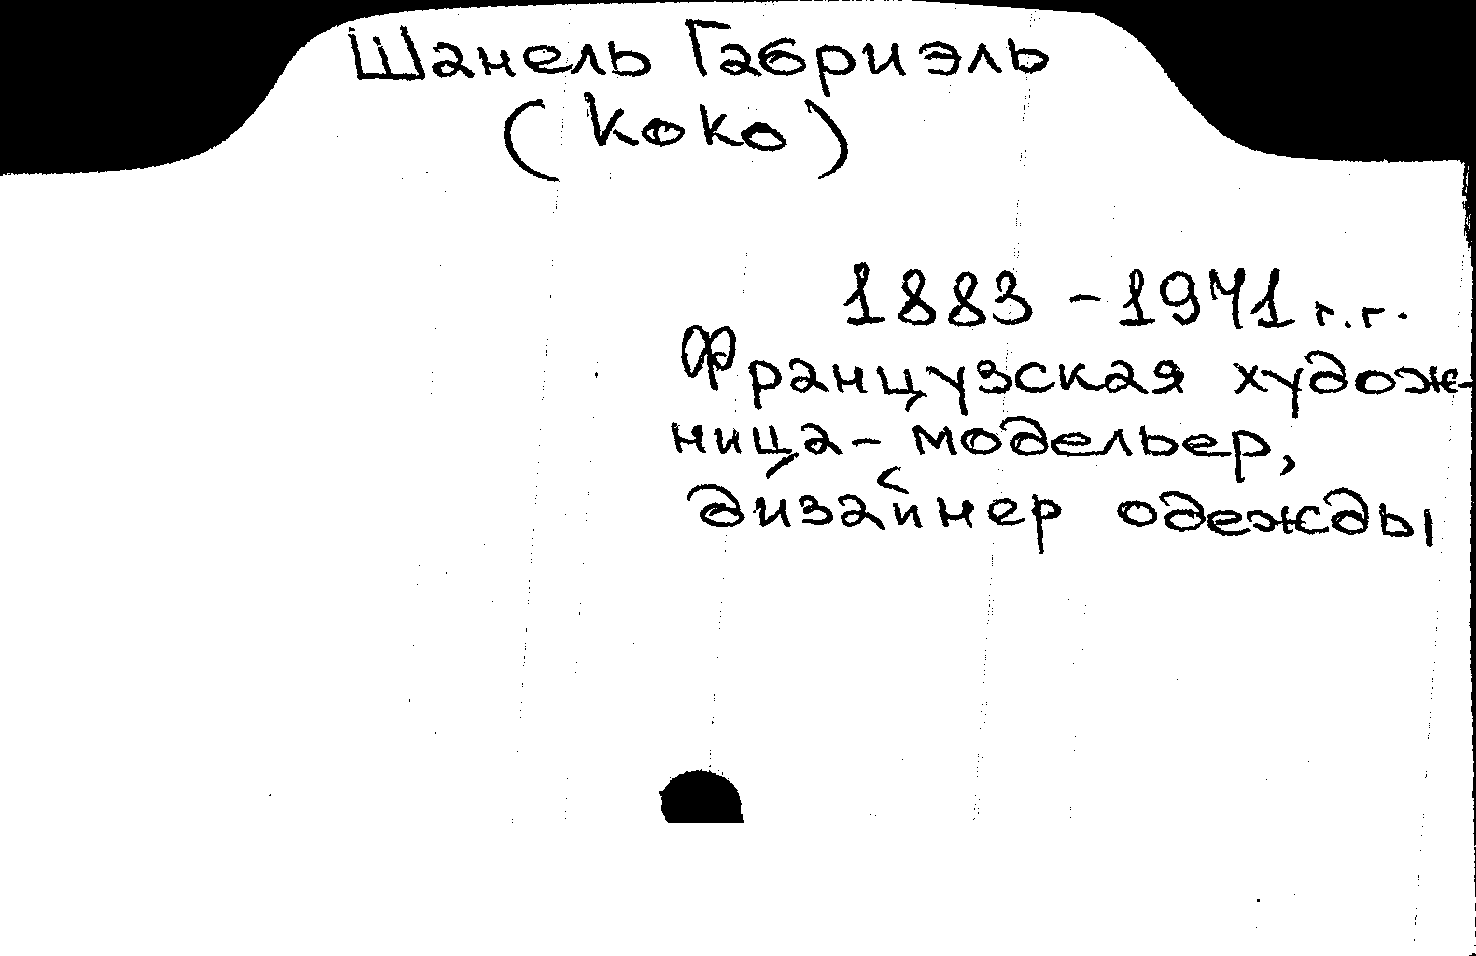 Шанель Габриэль
(Коко)
1883 - 1971 г.г.
Французская худож-
ница- модельер,
дизайнер одежды